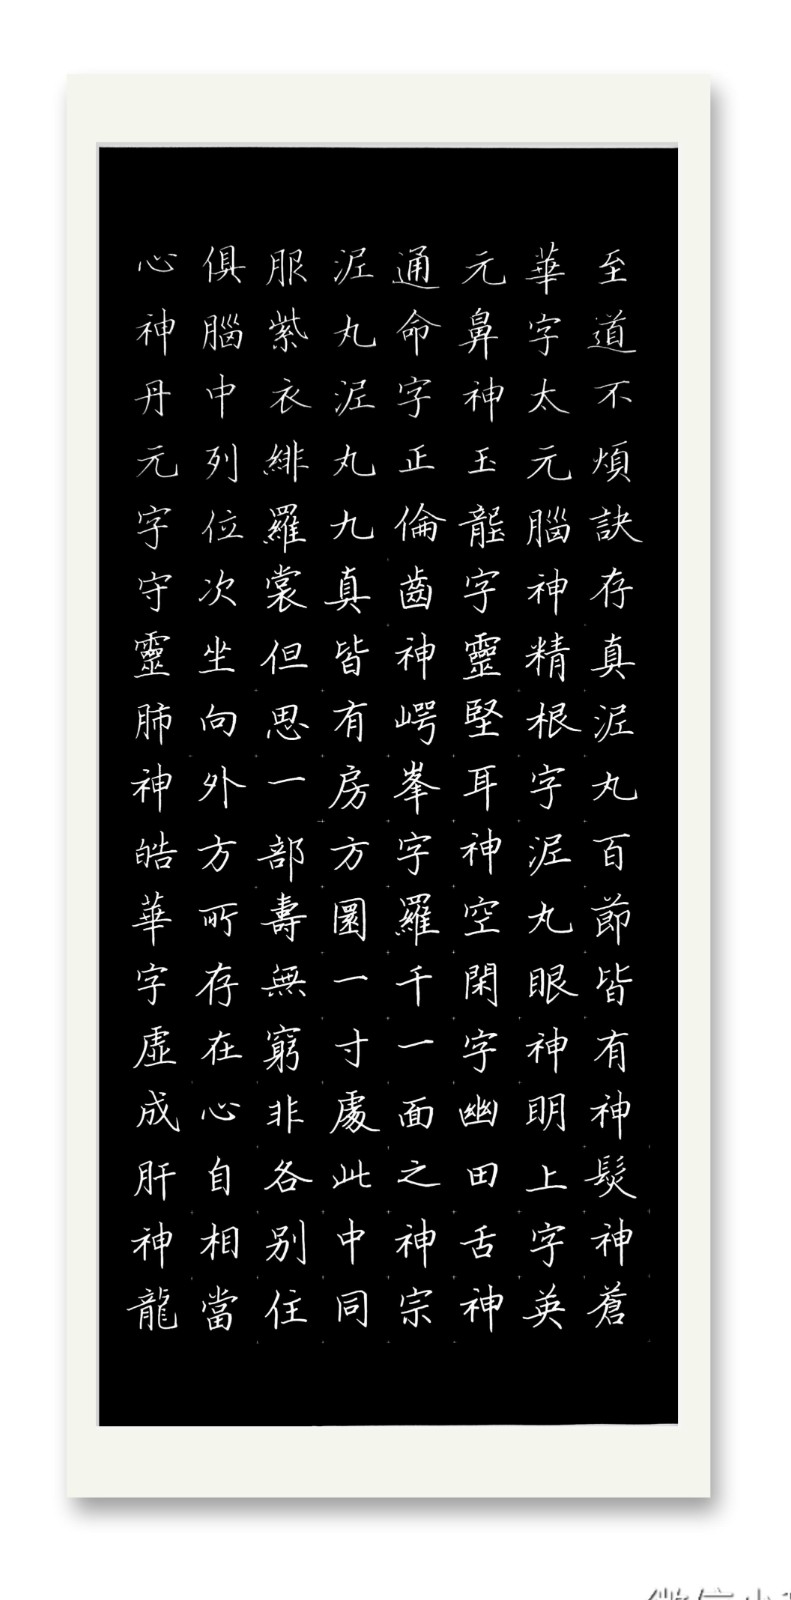 至道不煩訣存真泥丸百節皆有神髮神蒼
華字太元腦神精根字泥丸眼神明上字英
元鼻神玉壟字靈堅耳神空閑字幽田舌神
通命字正倫齒神崿峯字羅千一面之神宗
泥丸泥丸九真皆有房方圓一寸處此中同
服紫衣緋羅裳但思一部壽無窮非各別住
俱腦中列位次坐向外方所存在心自相當
心神丹元字守靈肺神皓華字虛成肝神龍
微信小